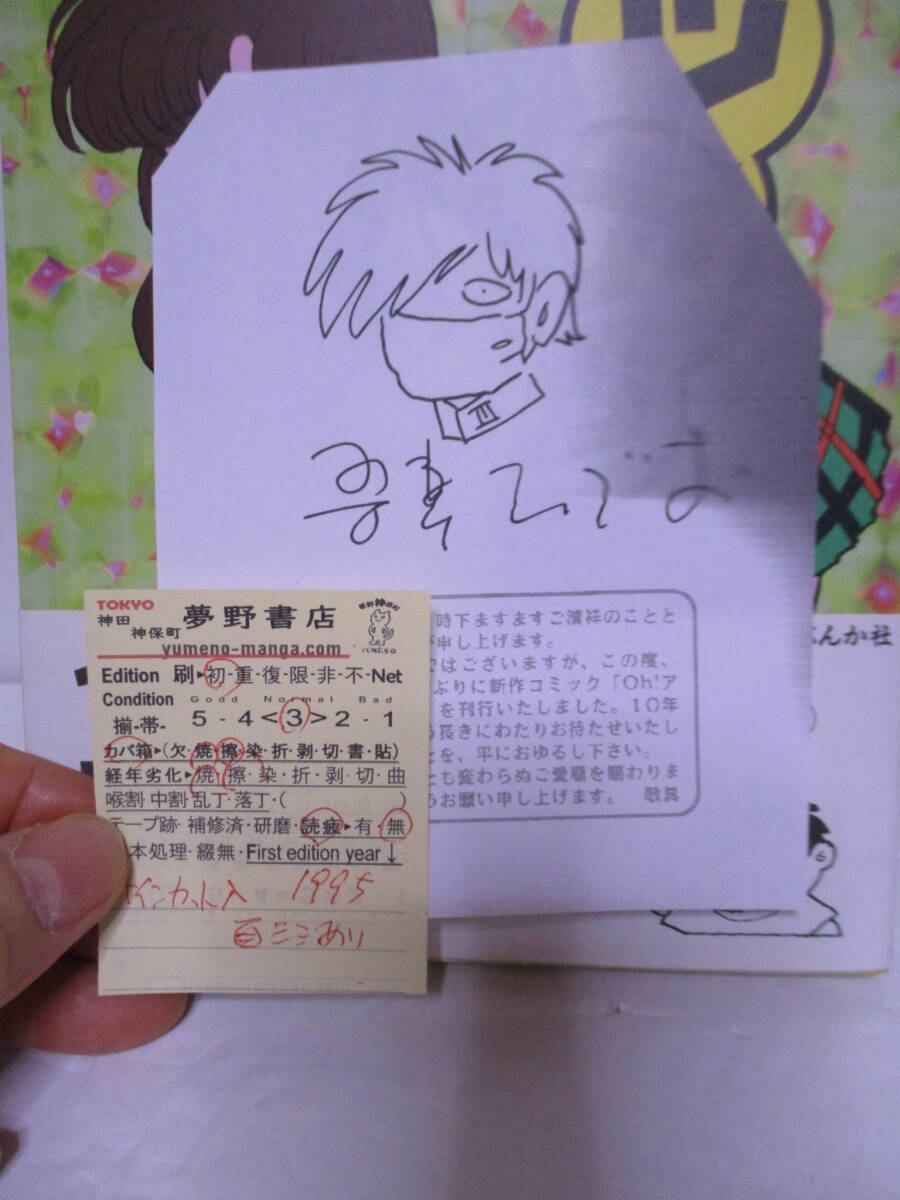 III
TOKYO
神田
神保町
夢野書店
夢野神保町
YUMENO
yumeno-manga.com
Edition 刷▸初-重-復-限-非-不-Net
Good Normal Bad
Condition
揃-帯- 5 - 4 < 3 > 2 - 1
カバ箱▸(欠・焼・擦・染・折・剥・切・書・貼)
経年劣化▸焼・擦・染・折・剥・切・曲
喉割・中割・乱丁・落丁・( )
テープ跡・補修済・研磨・読疲▸有・無
本処理・綴無・First edition year↓
サインカット入 1995
時下ますますご清祥のことと
申し上げます。
ではございますが、この度、
ぶりに新作コミック「Oh!ア
を刊行いたしました。10年
長きにわたりお待たせいたし
とを、平におゆるし下さい。
とも変わらぬご愛顧を賜わりま
お願い申し上げます。 敬具
ぶんか社